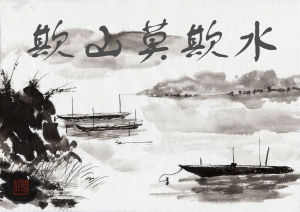 欺山莫欺水